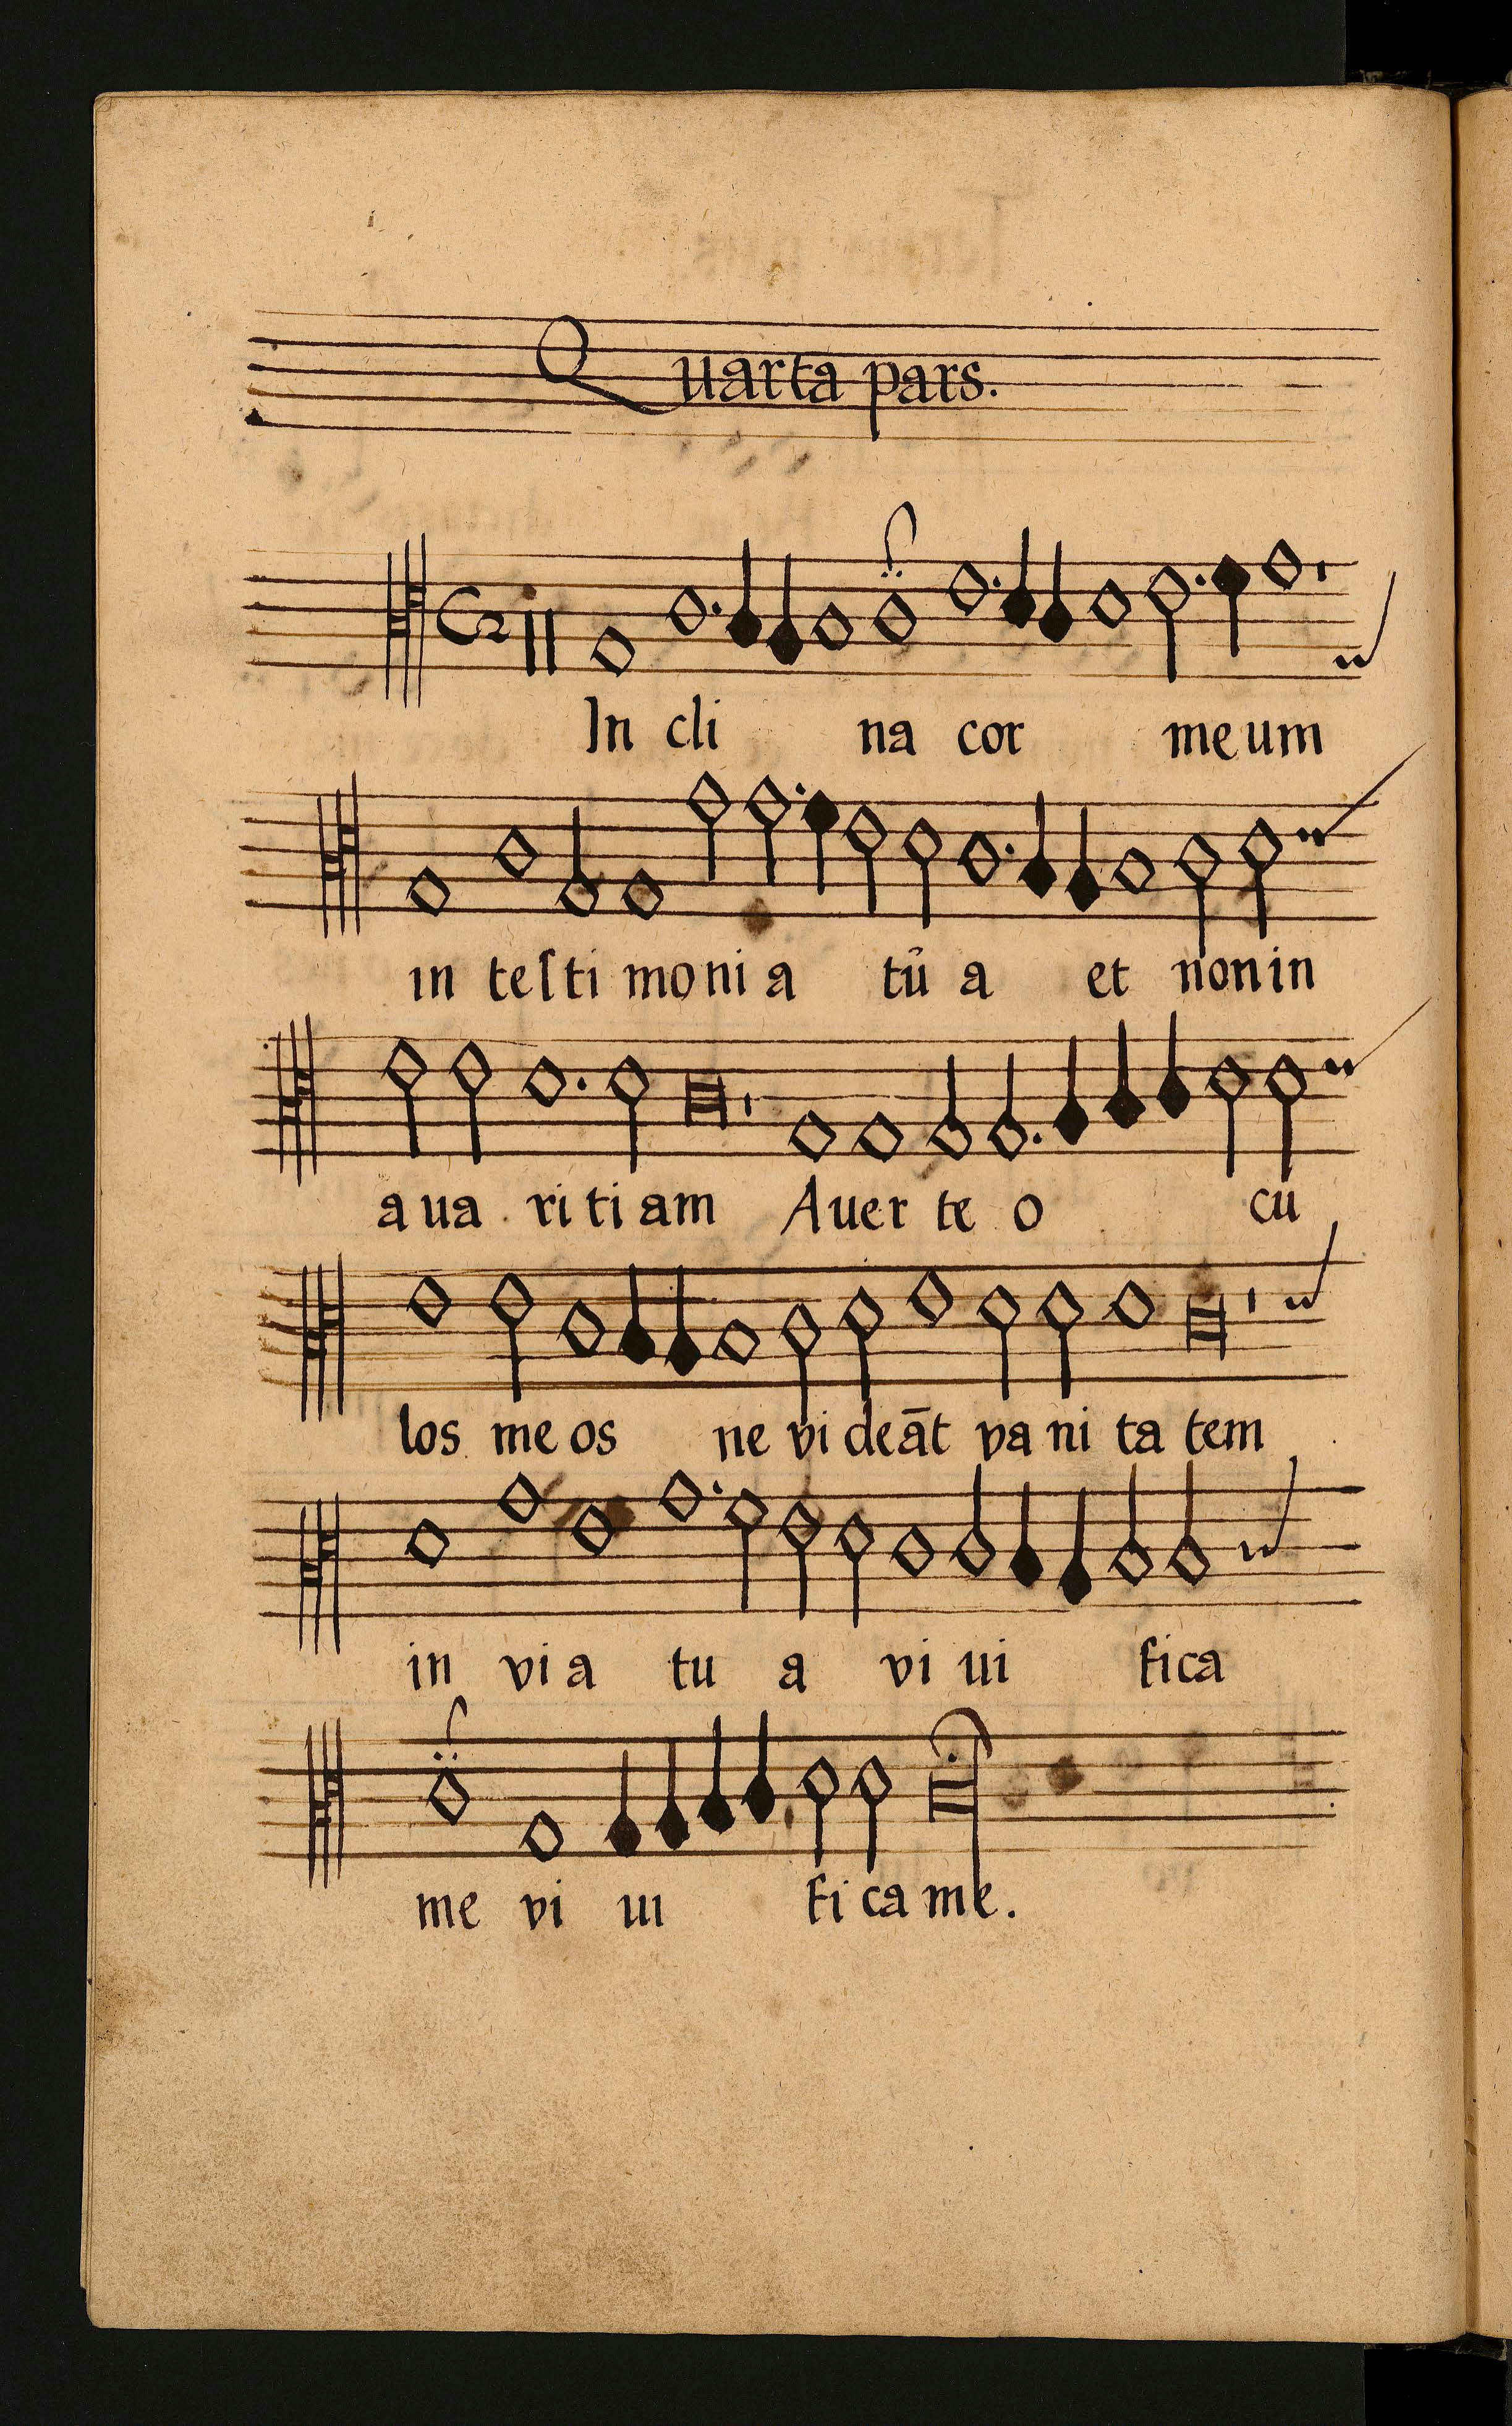 Quarta pars.
In cli na cor meum
in teſti moni a tu a et non in
aua ri ti am Auer te o cu
los me os ne vi deāt va ni ta tem
in vi a tu a vi ui fica
me vi ui fi ca me.